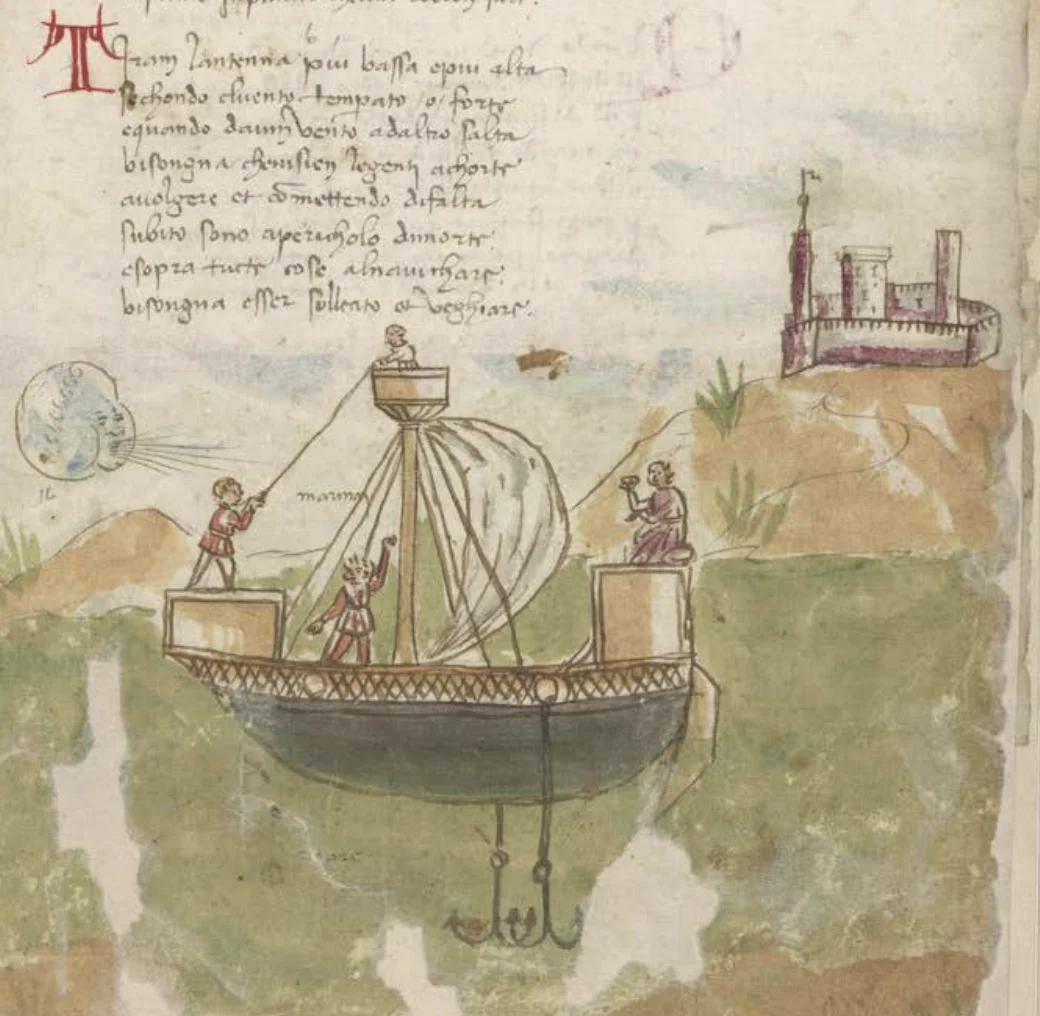 Tiram lantenna piu bassa epiu alta
sechondo eluento tempato o forte
equando daun vento adaltro salta
bisongna cheuisien legenti achorte
auolgere et cōmettendo difalta
subito sono apericholo dimorte
esopra tucte cose alnauichare
bisongna esser sollecito et veghiare
mare